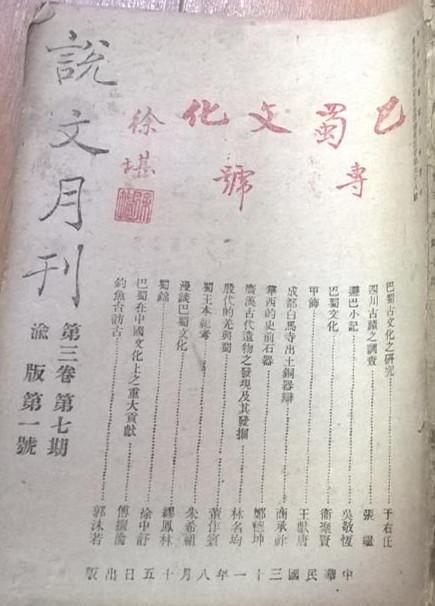 巴蜀文化
專號
徐堪
巴蜀古文化之研究……于右任
四川古蹟之調查……張繼
遊巴小記……吳敬恆
巴蜀文化……衛聚賢
甲飾……王獻唐
成都白馬寺出土銅器辯……商承祚
華西的史前石器……鄭德坤
廣漢古代遺物之發現及其發掘……林名均
殷代的羌與蜀……董作賓
蜀王本紀考……朱希祖
漫談巴蜀文化……繆鳳林
蜀錦……徐中舒
巴蜀在中國文化上之重大貢獻……傅振倫
釣魚台訪古……郭沫若
說文月刊
第三卷第七期
渝版第一號
中華民國三十一年八月十五日出版